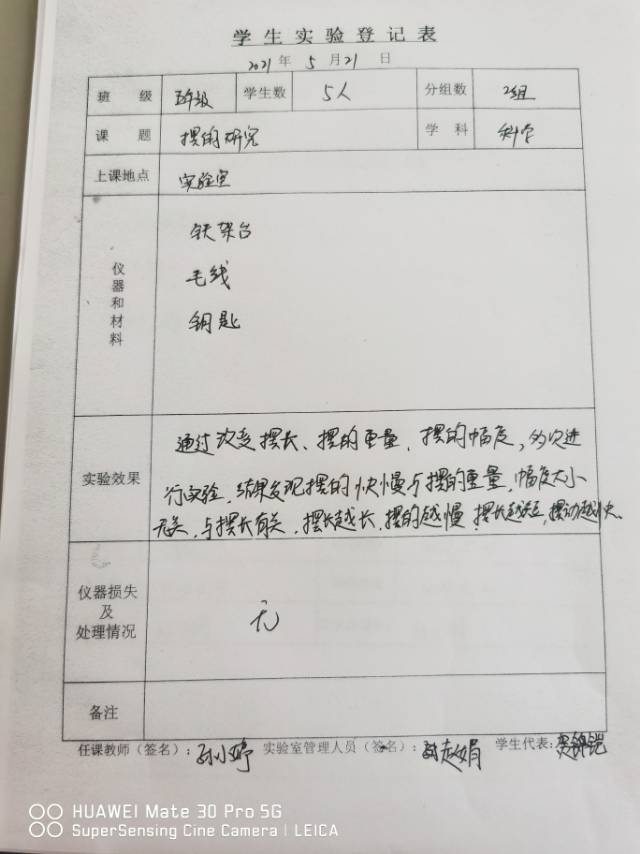 学生实验登记表
2021年 5月21日
班级 五年级 学生数 5人 分组数 2组
课题 摆的研究 学科 科学
上课地点 实验室
仪器和材料
铁架台
毛线
钥匙
实验效果
通过改变摆长、摆的重量、摆的幅度,多次进
行实验,结果发现摆的快慢与摆的重量,幅度大小
无关,与摆长有关,摆长越长,摆的越慢,摆长越短,摆动越快.
仪器损失
及
处理情况
无
备注
任课教师(签名):孙小婷 实验室管理人员(签名): 学生代表:
HUAWEI Mate 30 Pro 5G
SuperSensing Cine Camera | LEICA